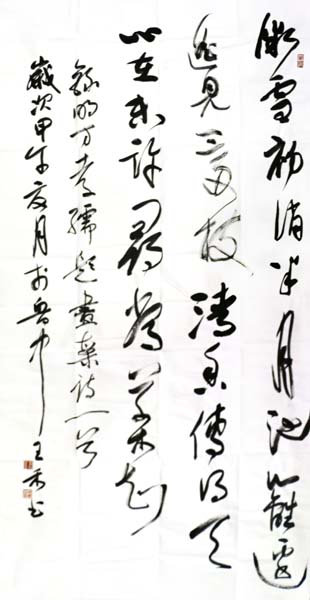 微雪初消半月池籬邊
遥見三四枝清香傳得天
心在未許尋常草木知
錄明方孝孺題畫某詩一首
歲次甲午夏月于魯中 王 书